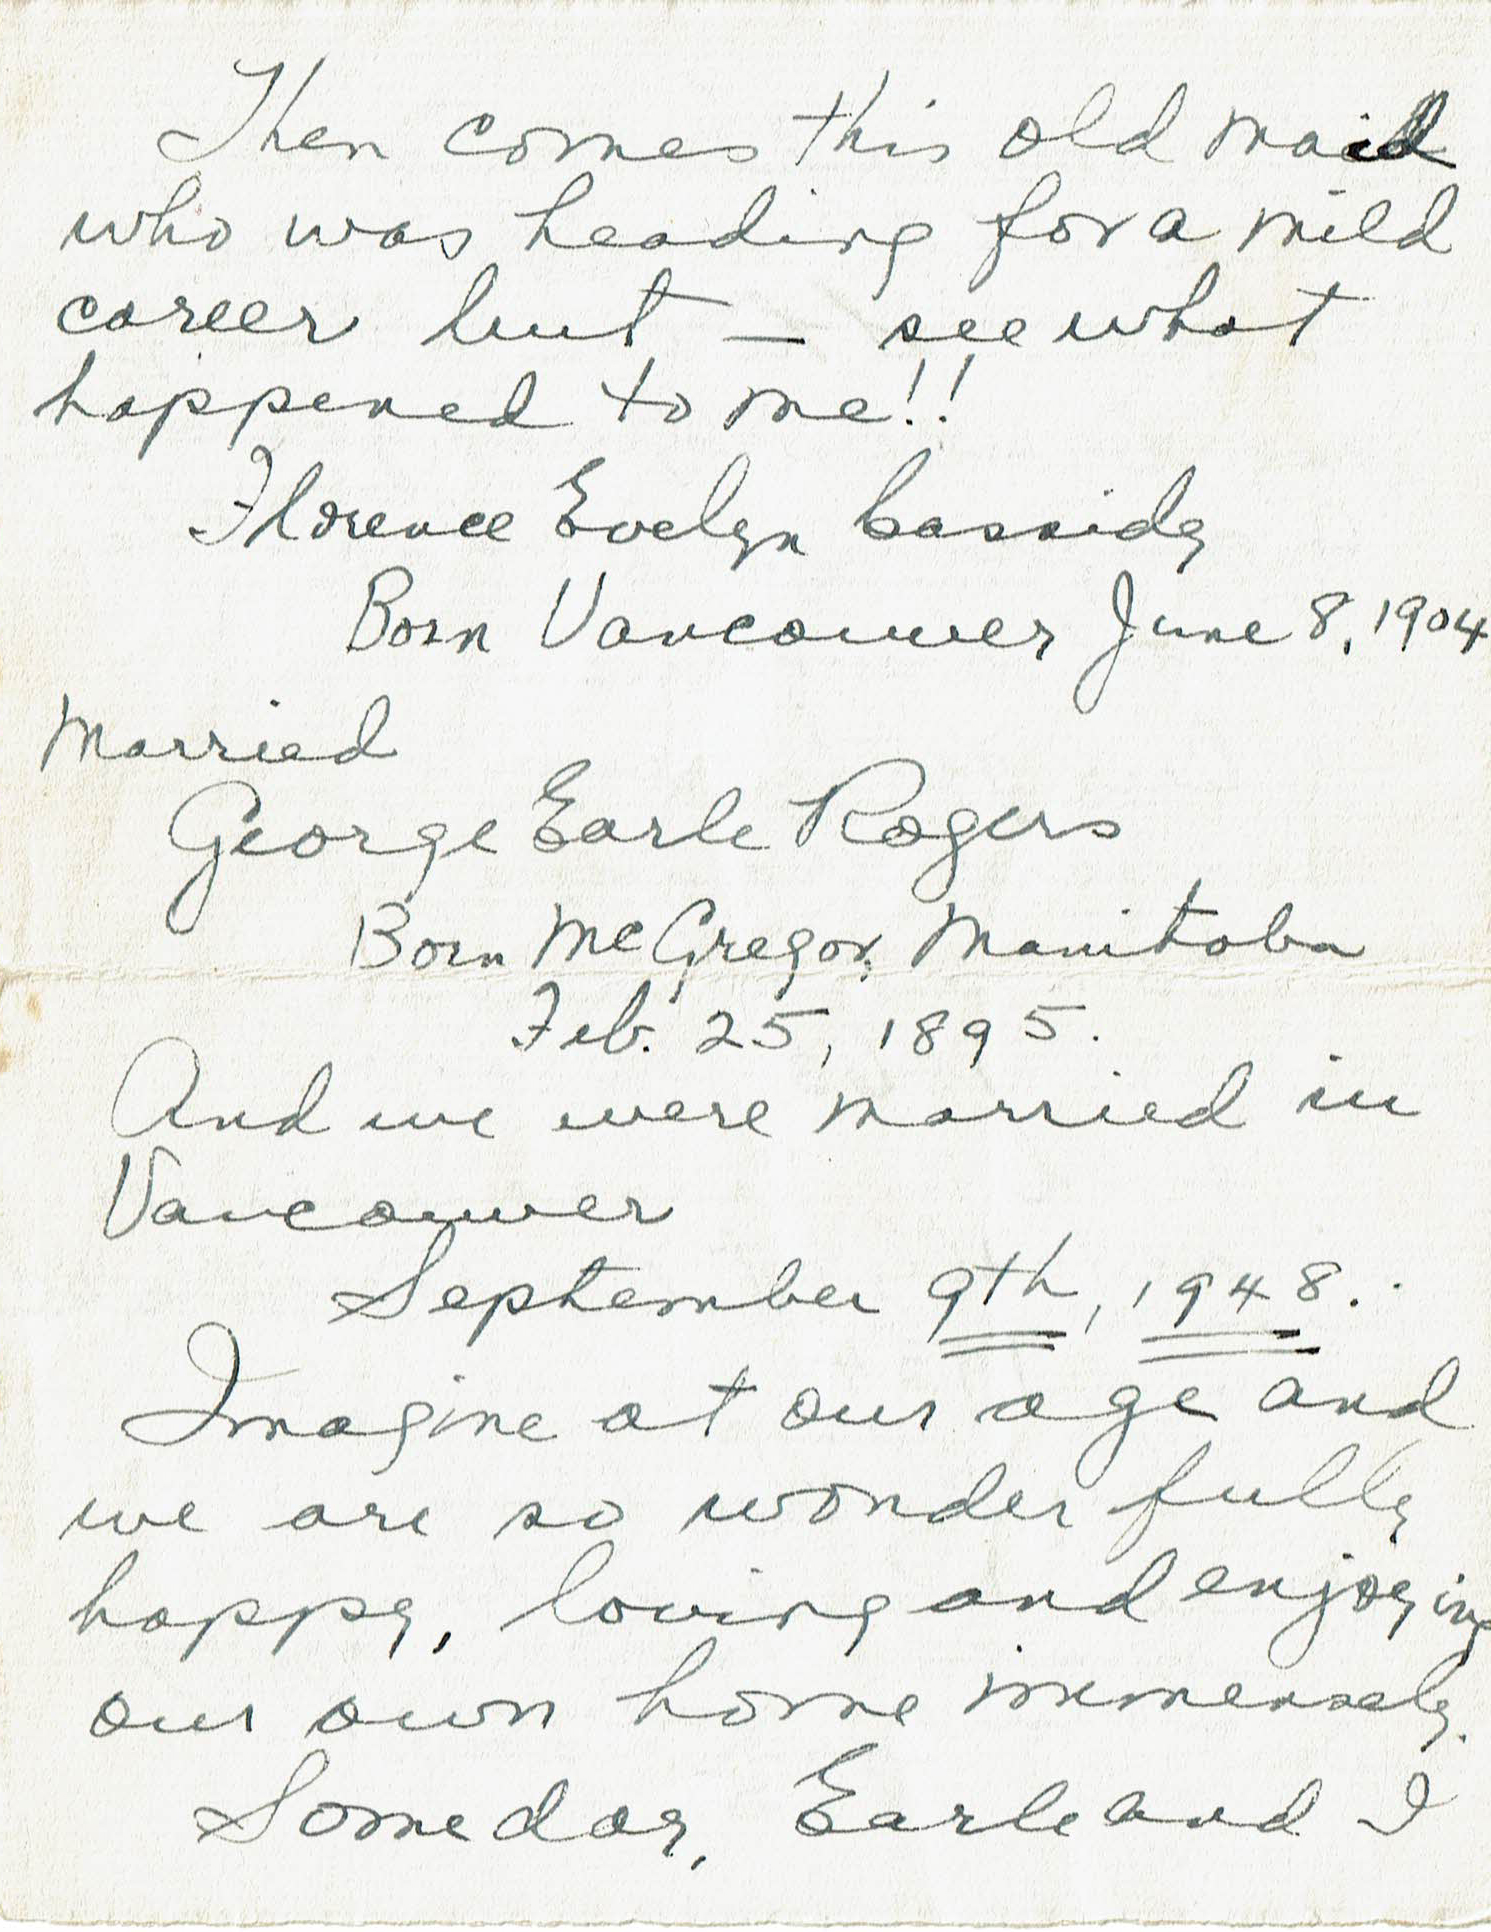 Then comes this old maid
who was heading for a mild
career but — see what
happened to me!!
Florence Evelyn Cassidy
Born Vancouver June 8, 1904
Married
George Earle Rogers
Born McGregor, Manitoba
Feb. 25, 1895.
And we were married in
Vancouver
September 9th, 1948.
Imagine at our age and
we are so wonderfully
happy, loving and enjoying
our own home immensely.
Someday, Earle and I